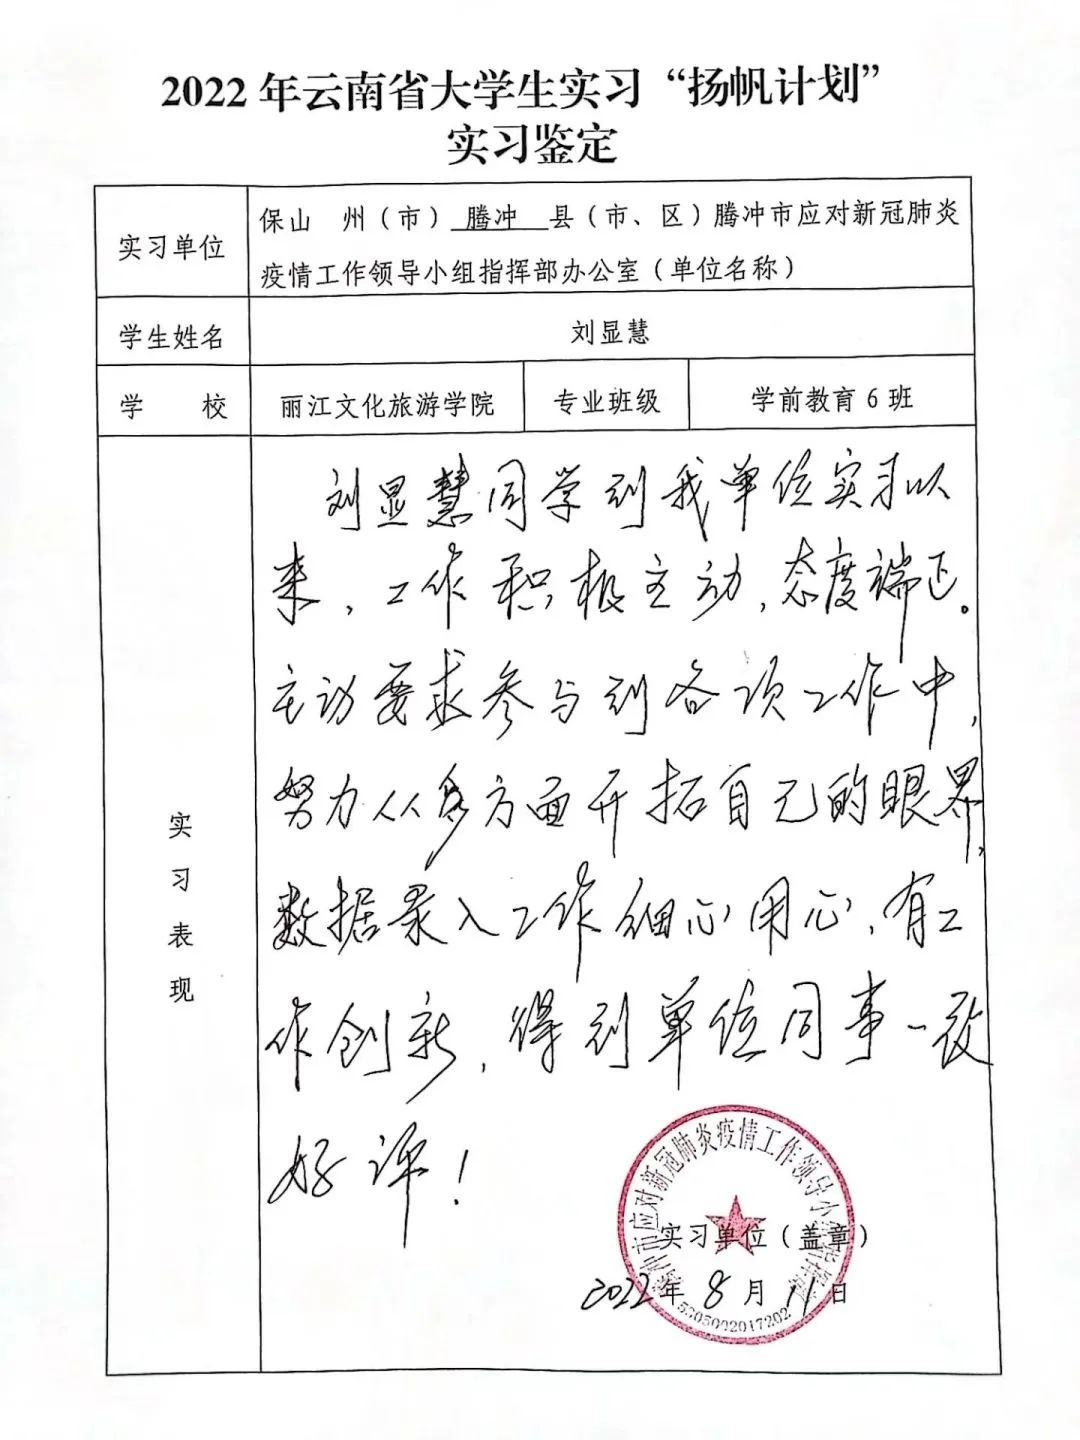 2022 年云南省大学生实习“扬帆计划”
实习鉴定
实习单位
保山 州（市） 腾冲 县（市、区）腾冲市应对新冠肺炎
疫情工作领导小组指挥部办公室（单位名称）
学生姓名
刘显慧
学 校
丽江文化旅游学院
专业班级
学前教育 6 班
实习表现
刘显慧同学到我单位实习以
来，工作积极主动，态度端正。
主动要求参与到各项工作中，
努力从多方面开拓自己的眼界，
数据录入工作细心用心，有工
作创新，得到单位同事一致
好评！
市应对新冠肺炎疫情工作领导小组指挥部
实习单位（盖章）
2022 年 8 月 11 日
5305002017202